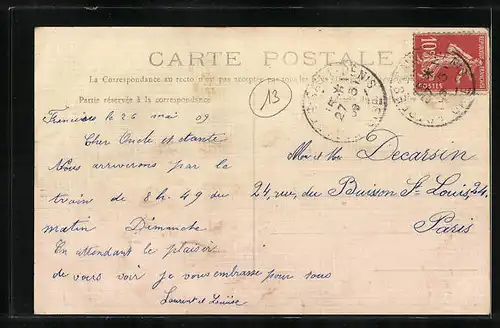 CARTE POSTALE
La Correspondance au recto n'est pas acceptée par tous les
Partie réservée à la correspondance
13
le 26 mai 09
Cher Oncle et tante
Nous arriverons par le
train de 8 h. 49 du
matin Dimanche
En attendant le plaisir
de vous voir je vous embrasse pour tous
Laurent et Louise
Mr et Mme Decarsin
24, rue du Buisson St Louis, 24.
Paris
10c
POSTES